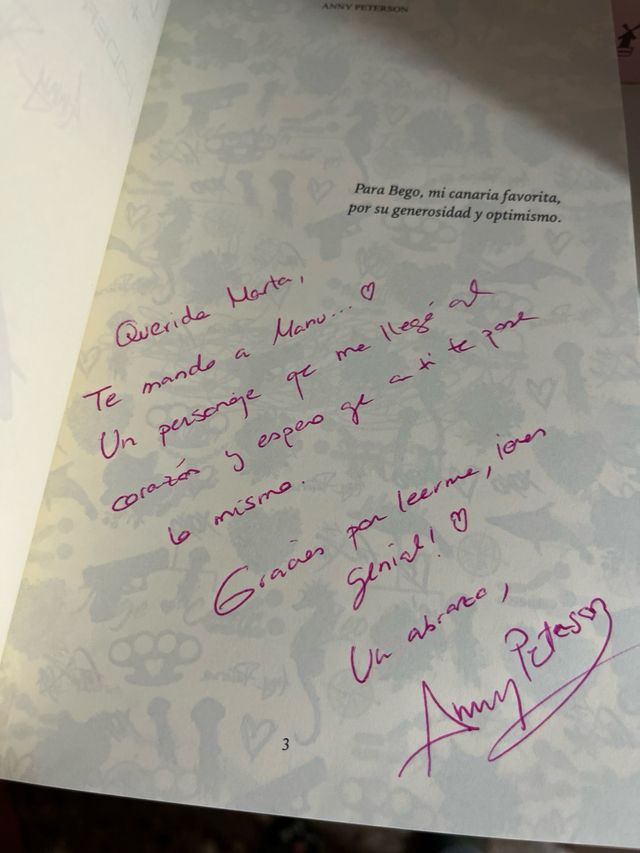 ANNY PETERSON
Para Bego, mi canaria favorita,
por su generosidad y optimismo.
Querida Marta,
Te mando a Manu... ♡
Un personaje qe me llegó al
corazón y espero qe a ti te pase
lo mismo.
Gracias por leerme, ¡eres
genial! ♡
Un abrazo,
Anny Peterson
3